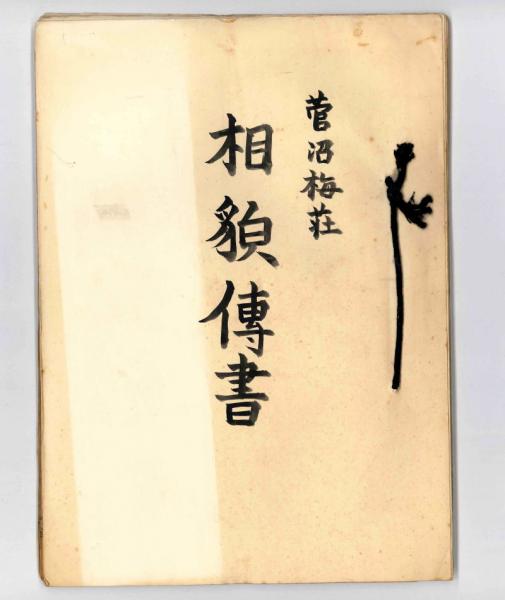 菅沼梅荘
相貌傳書